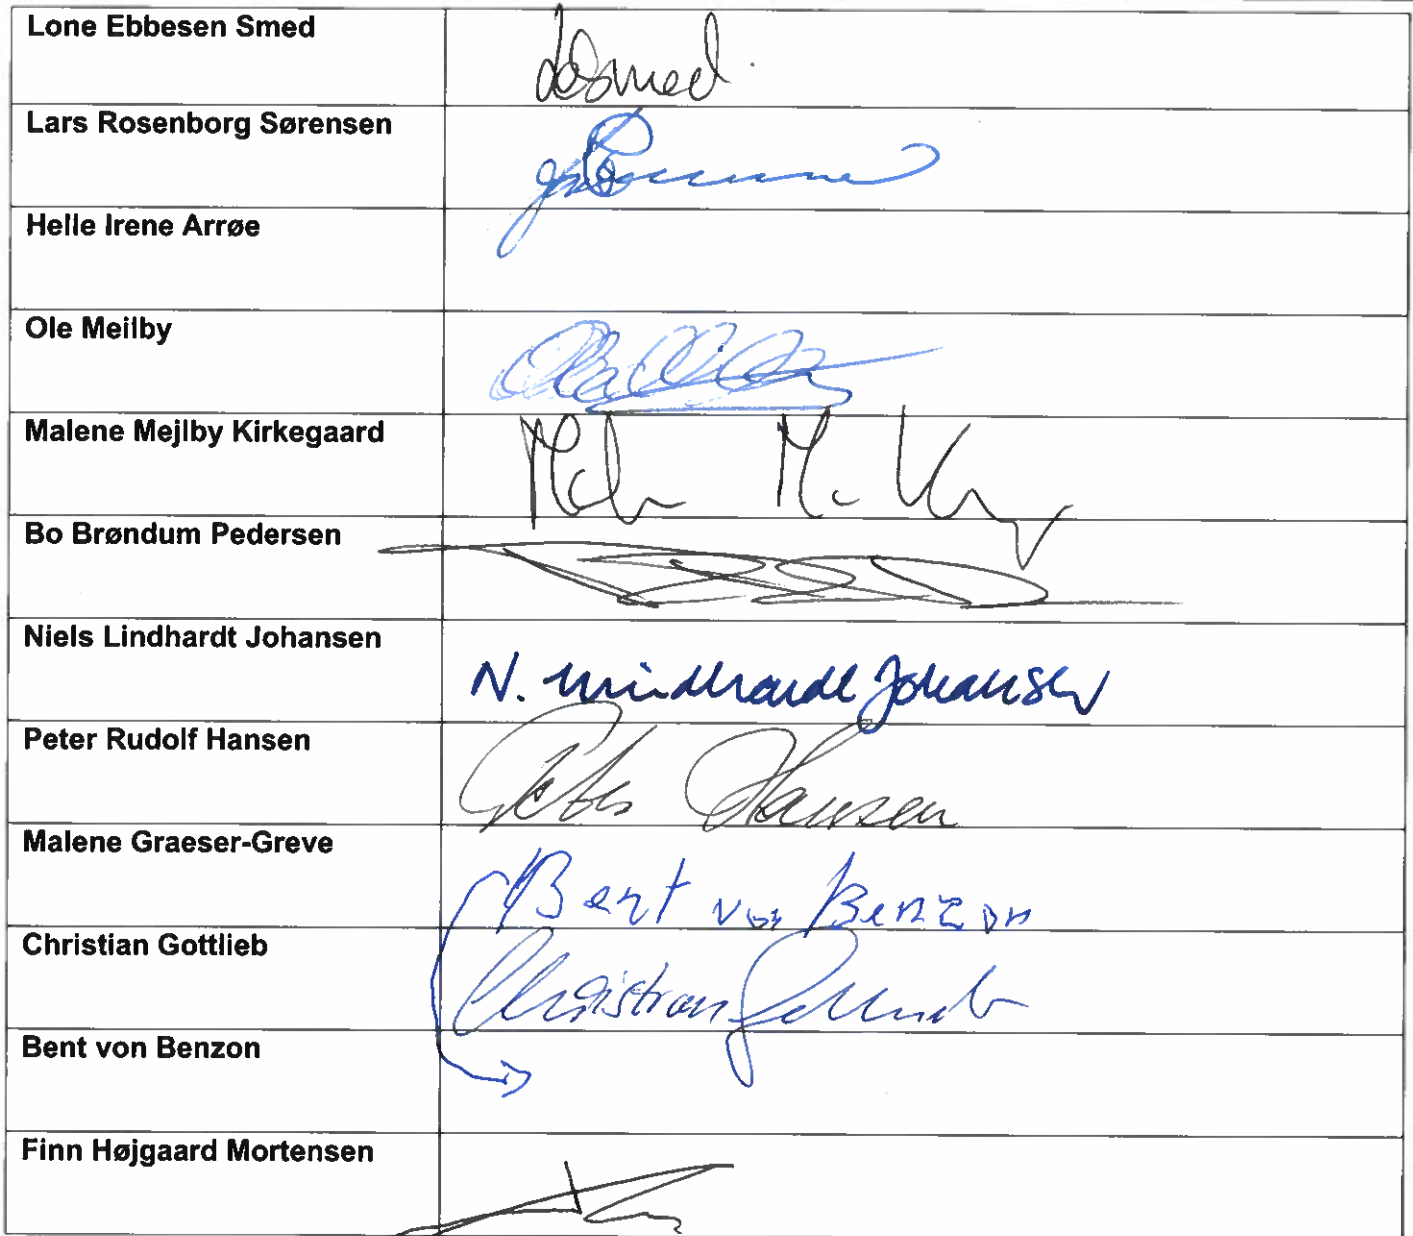 Lone Ebbesen Smed
Lars Rosenborg Sørensen
Helle Irene Arrøe
Ole Meilby
Malene Mejlby Kirkegaard
Bo Brøndum Pedersen
Niels Lindhardt Johansen
N. Lindhardt Johansen
Peter Rudolf Hansen
Peter Hansen
Malene Graeser-Greve
Bent von Benzon
Christian Gottlieb
Christian Gottlieb
Bent von Benzon
Finn Højgaard Mortensen